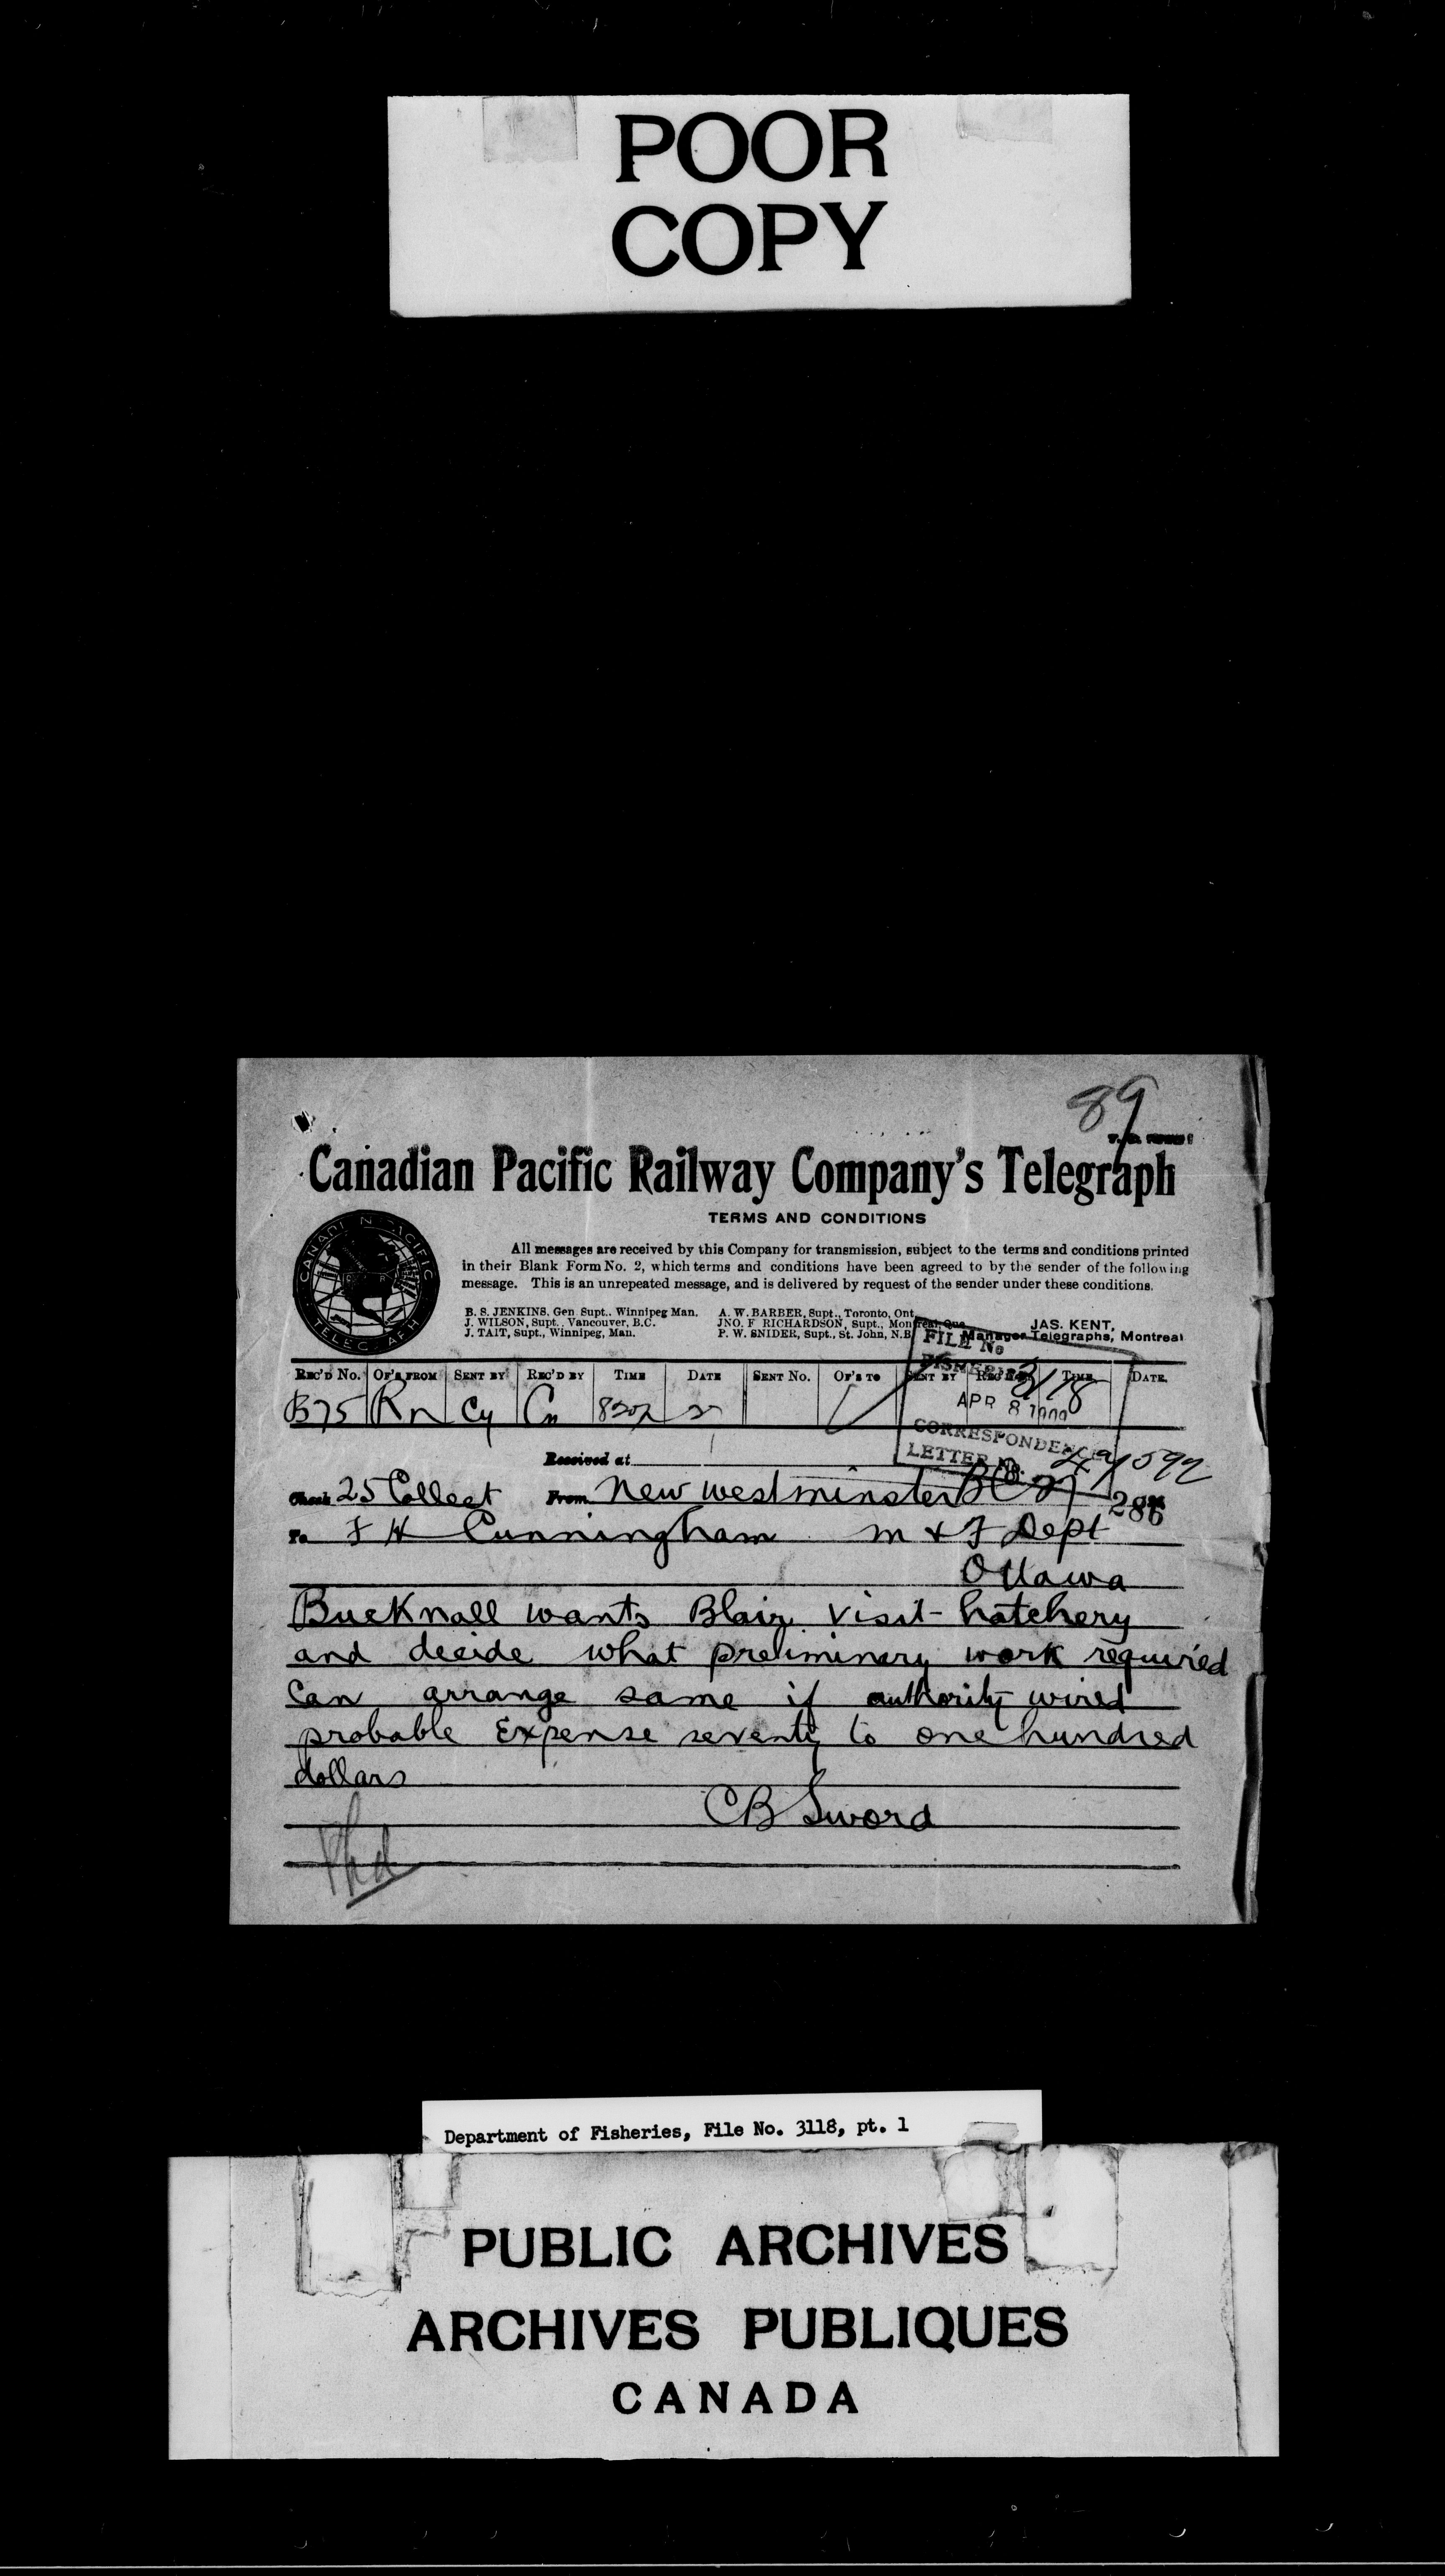 POOR
COPY
89
Canadian Pacific Railway Company's Telegraph
TERMS AND CONDITIONS
All messages are received by this Company for transmission, subject to the terms and conditions printed
in their Blank Form No. 2, which terms and conditions have been agreed to by the sender of the following
message. This is an unrepeated message, and is delivered by request of the sender under these conditions.
CANADIAN PACIFIC
TELEGRAPH
B. S. JENKINS, Gen. Supt., Winnipeg Man. A. W. BARBER, Supt., Toronto, Ont.
J. WILSON, Supt., Vancouver, B.C. JNO. F. RICHARDSON, Supt., Montreal, Que. JAS. KENT,
J. TAIT, Supt., Winnipeg, Man. P. W. SNIDER, Supt., St. John, N.B. Manager Telegraphs, Montreal
FILE No
FISHERIES 3118
APR 8 1909
CORRESPONDENCE
LETTER No.
REC'D No. OF'S FROM SENT BY REC'D BY TIME DATE SENT No. OF'S TO SENT BY REC'D BY TIME DATE.
B75 Rn Cy Cn
Received at
Check 25 Collect From New Westminster BC 27
286
To F H Cunningham M & F Dept
Ottawa
Bucknall wants Blair visit hatchery
and decide what preliminary work required
Can arrange same if authority wired
probable Expense seventy to one hundred
dollars
CB Sword
Department of Fisheries, File No. 3118, pt. 1
PUBLIC ARCHIVES
ARCHIVES PUBLIQUES
CANADA